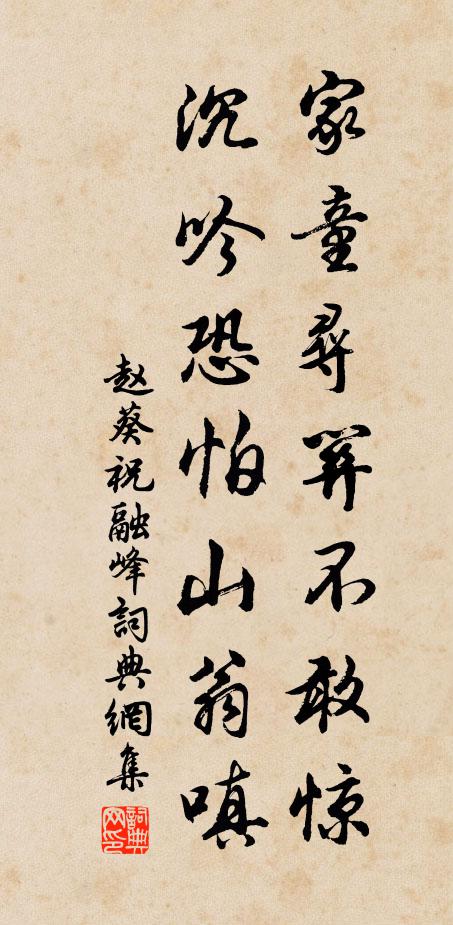 家童尋笄不敢惊
沉吟恐怕山翁嗔
赵葵祝融峰詞典網集
詞典网印